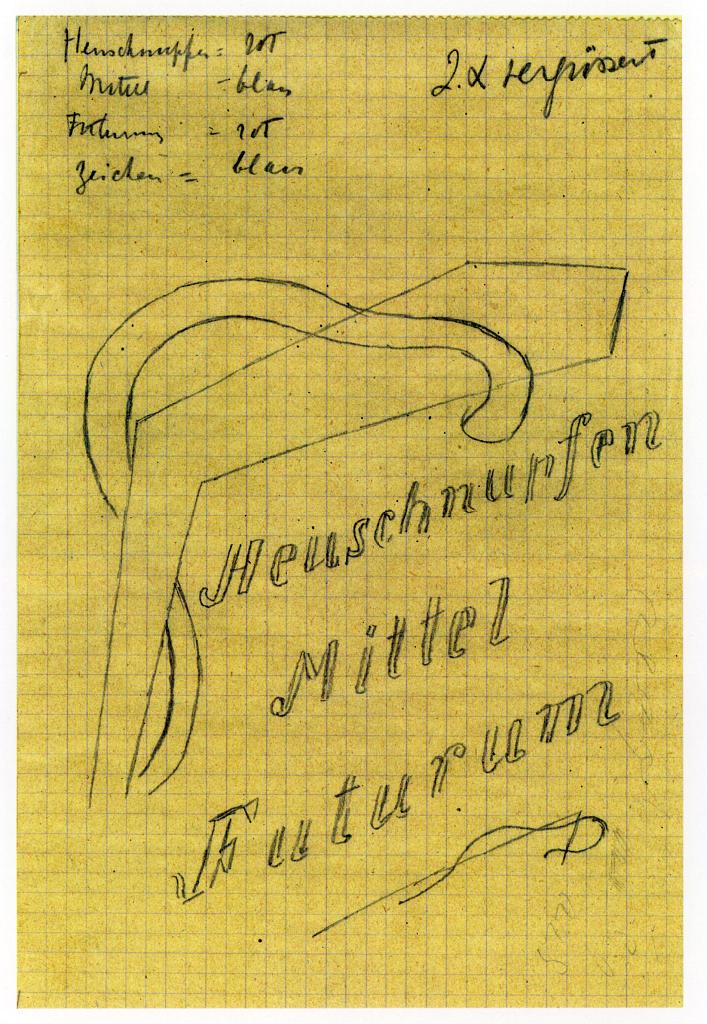 Heuschnupfen = rot
Mittel = blau
Futurum = rot
Zeichen = blau
2 x vergrössert
Heuschnupfen
Mittel
Futurum